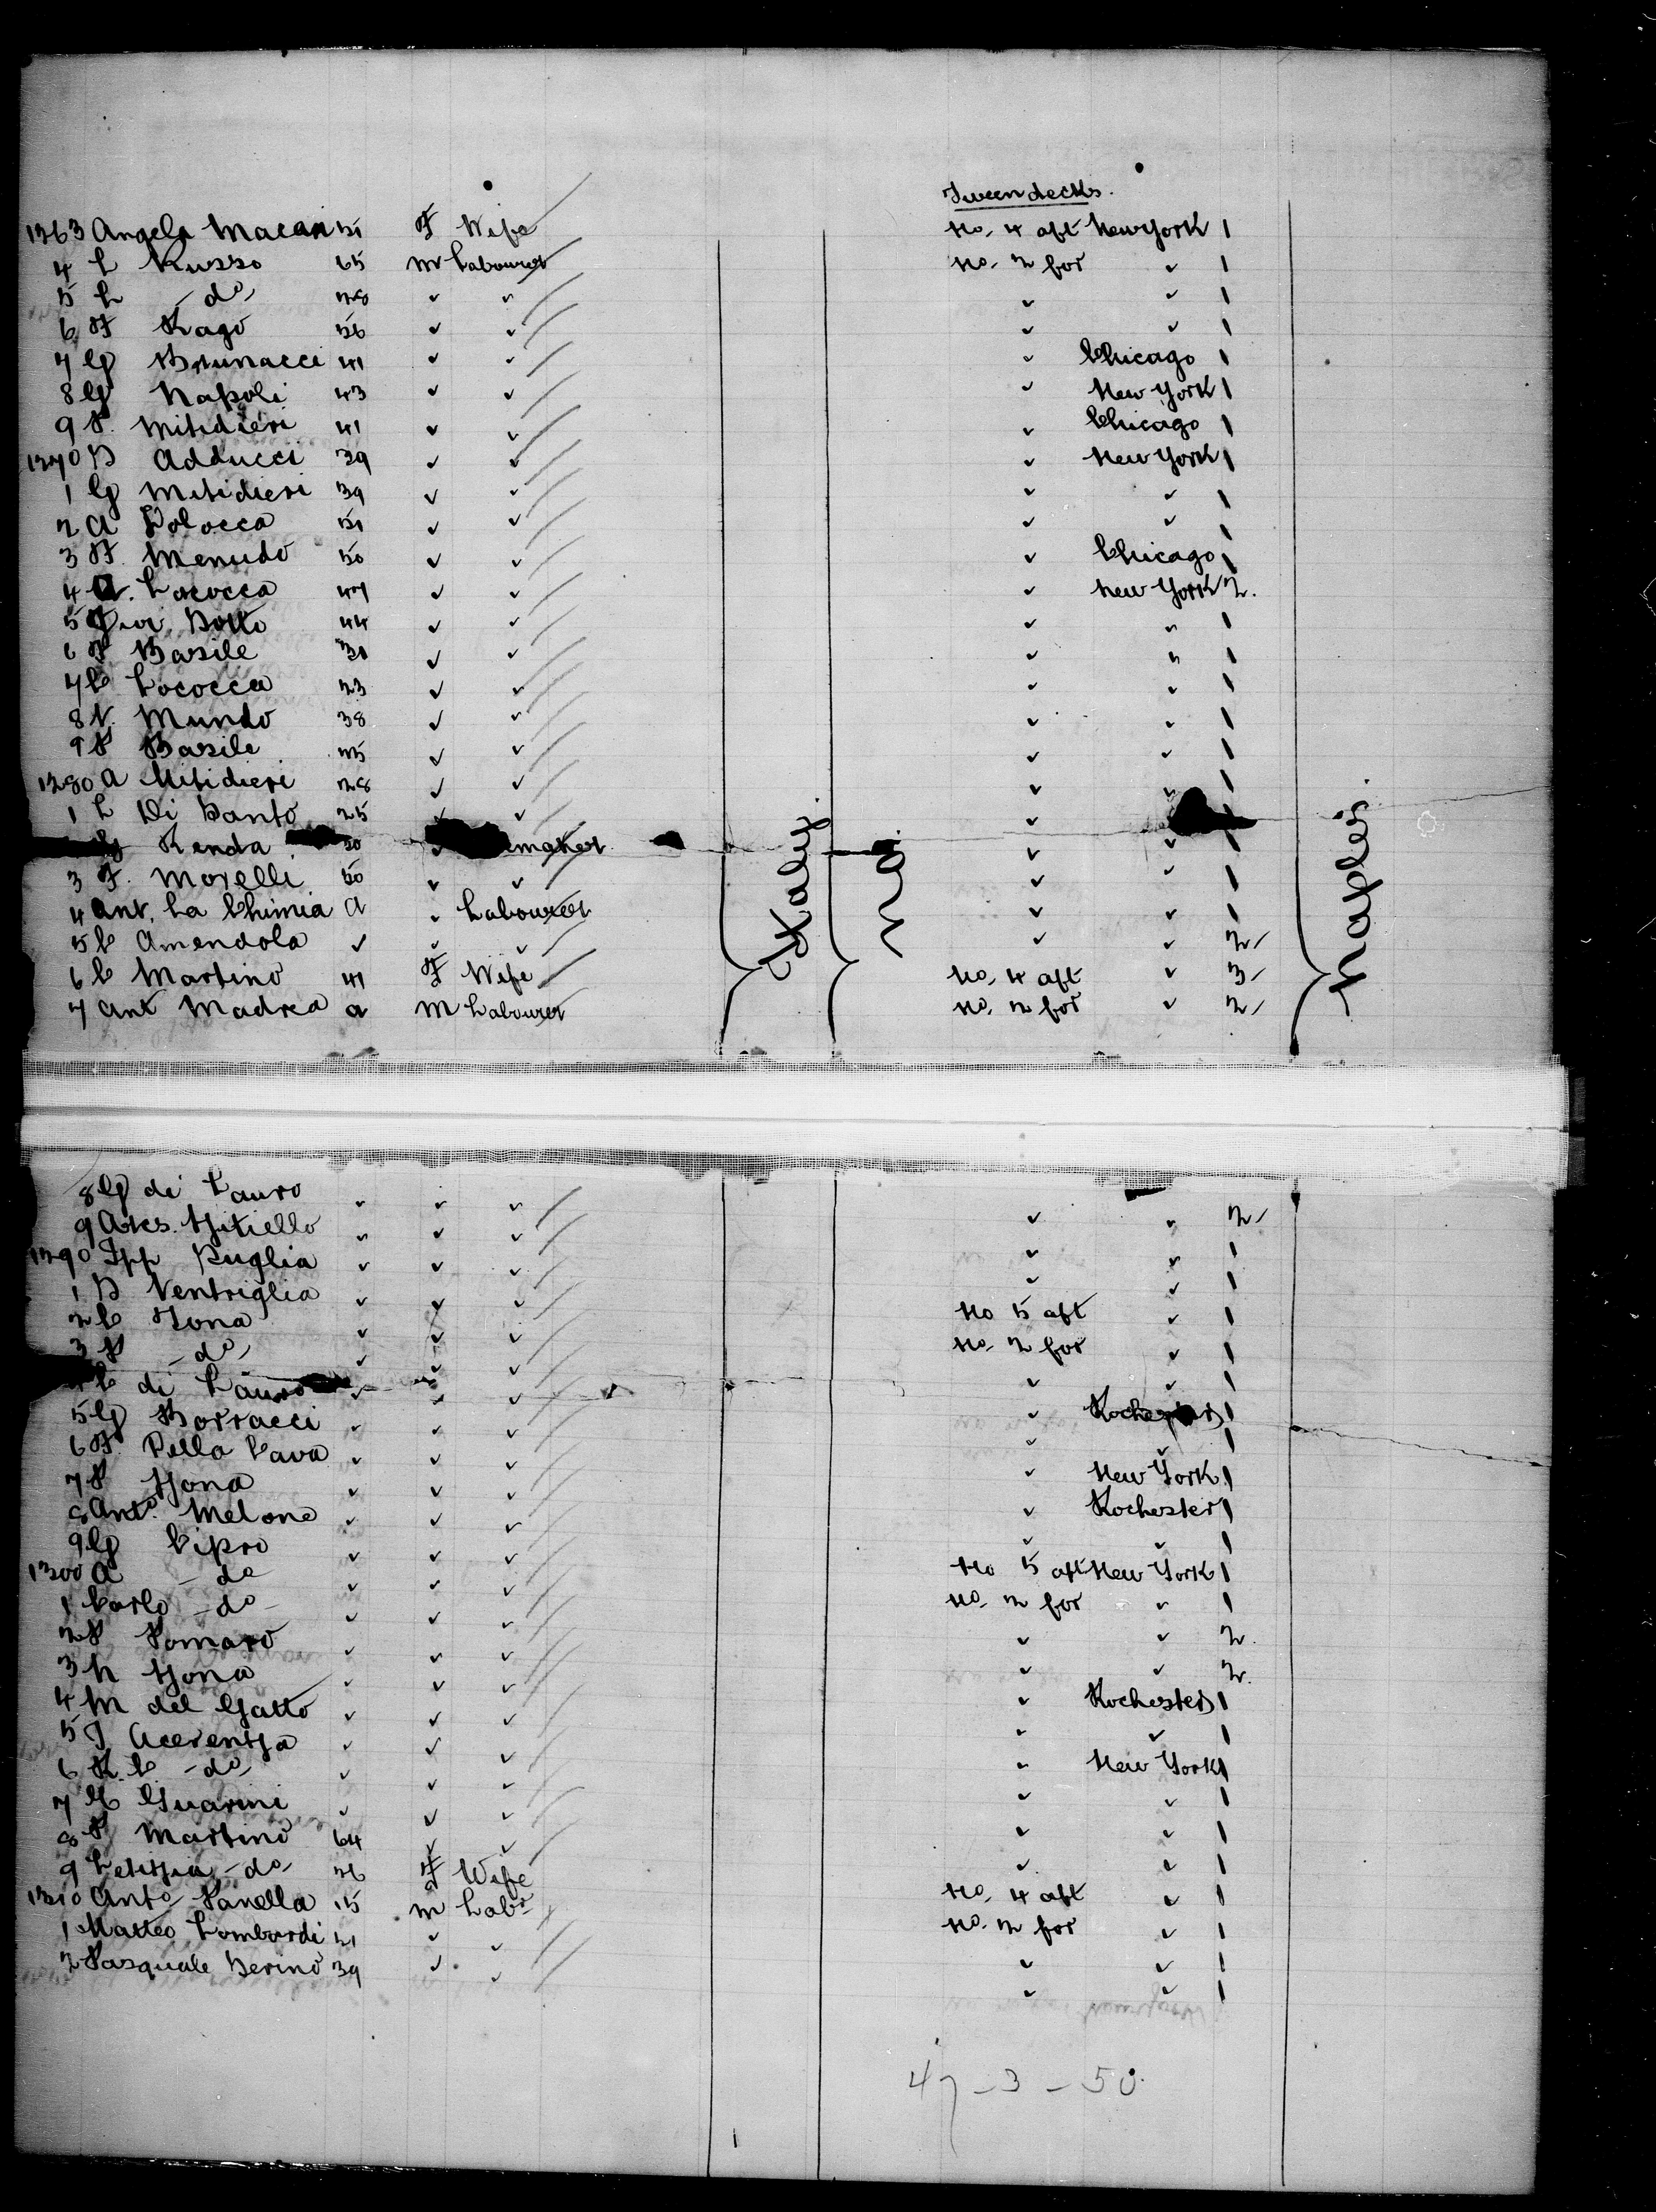 Tween decks.
1263 Angela Macan 51 F Wife No. 4 aft New York 1
4 L Russo 65 M Labourer No. 2 for ✓ 1
5 L - do - 28 ✓ ✓ ✓ ✓ 1
6 F Rago 56 ✓ ✓ ✓ ✓ 1
7 G Brunacci 41 ✓ ✓ ✓ Chicago 1
8 G Napoli 43 ✓ ✓ ✓ New York 1
9 P. Mitidieri 41 ✓ ✓ ✓ Chicago 1
1270 D Adducci 39 ✓ ✓ ✓ New York 1
1 G Mitidieri 39 ✓ ✓ ✓ ✓ 1
2 A Lolocca 51 ✓ ✓ ✓ ✓ 1
3 F. Menudo 50 ✓ ✓ ✓ Chicago 1
4 A. Lococca 47 ✓ ✓ ✓ New York 2.
5 Giov. Dotto 44 ✓ ✓ ✓ ✓ 1
6 F Basile 31 ✓ ✓ ✓ ✓ 1
7 C Lococca 23 ✓ ✓ ✓ ✓ 1
8 V. Mundo 38 ✓ ✓ ✓ ✓ 1
9 P Basile 45 ✓ ✓ ✓ ✓ 1
1280 A Mitidieri 28 ✓ ✓ ✓ ✓ 1
1 L Di Santo 25 ✓ ✓ ✓ 1
Renda 50 ✓ emaker ✓ ✓ 1
3 F. Morelli 50 ✓ ✓ ✓ ✓ 1
4 Ant. La Chimia a ✓ Labourer ✓ ✓ 1
5 C Amendola ✓ ✓ ✓ ✓ ✓ 2
6 C Martino 41 F Wife No. 4 aft ✓ 3
7 Ant Madrea a M Labourer No. 2 for ✓ 2
Italy
Naples
8 G di Lauro ✓ ✓ ✓ ✓ ✓ 2
9 Ales. Vitiello ✓ ✓ ✓ ✓ ✓ 1
1290 Ipp Puglia ✓ ✓ ✓ ✓ ✓ 1
1 D Ventriglia ✓ ✓ ✓ No 5 aft ✓ 1
2 C Zona ✓ ✓ ✓ No. 2 for ✓ 1
3 P - do - ✓ ✓ ✓ ✓ ✓ 1
C di Lauro ✓ ✓ ✓ ✓ Rochester 1
5 G Borracci ✓ ✓ ✓ ✓ ✓ 1
6 F. Della Cava ✓ ✓ ✓ ✓ New York 1
7 P Zona ✓ ✓ ✓ ✓ Rochester 1
8 Anto. Melone ✓ ✓ ✓ ✓ ✓ 1
9 G Cipro ✓ ✓ ✓ No 5 aft New York 1
1300 A - do ✓ ✓ ✓ No. 2 for ✓ 1
1 Carlo - do - ✓ ✓ ✓ ✓ ✓ 2.
2 P Pomaro ✓ ✓ ✓ ✓ ✓ 2.
3 N Zona ✓ ✓ ✓ ✓ Rochester 1
4 M del Gatto ✓ ✓ ✓ ✓ ✓ 1
5 J Acerentza ✓ ✓ ✓ ✓ New York 1
6 R. C. - do - ✓ ✓ ✓ ✓ ✓ 1
7 G Guarini ✓ ✓ ✓ ✓ ✓ 1
8 P Martino 64 ✓ ✓ ✓ ✓ 1
9 Letizia - do - 26 F Wife No. 4 aft ✓ 1
1310 Anto Panella 15 M Labr No. 2 for ✓ 1
1 Matteo Lombardi 21 ✓ ✓ ✓ ✓ 1
2 Pasquale Derino 39 ✓ ✓ ✓ ✓ 1
47 - 3 - 50